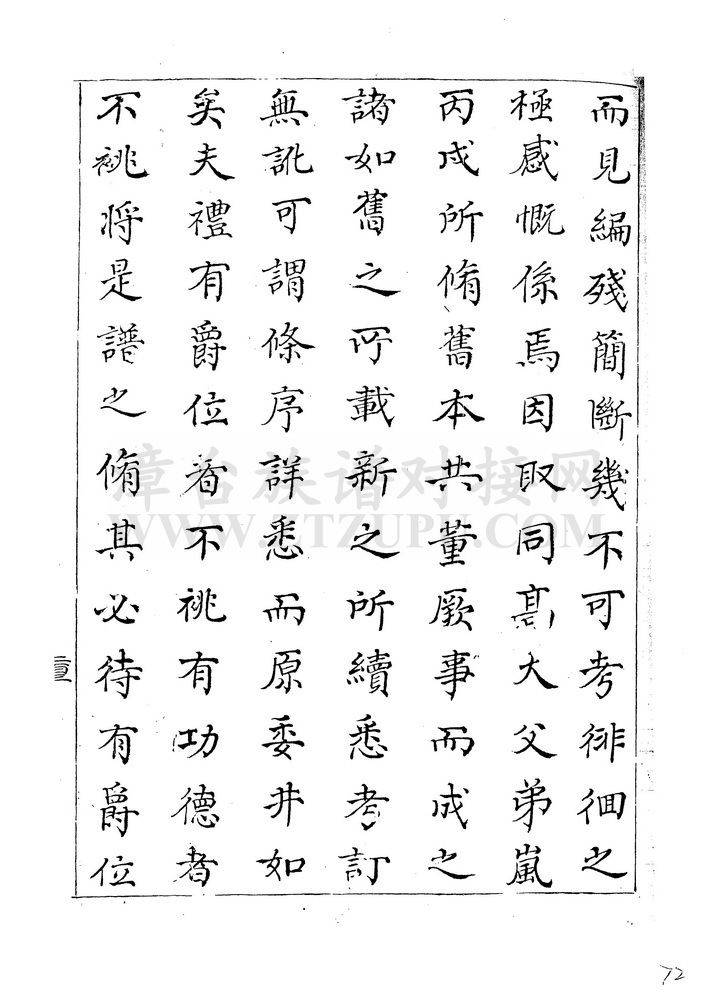 而見編殘簡斷幾不可考徘徊之
極感慨係焉因取同高大父弟嵐
丙成所脩舊本共董厥事而成之
諸如舊之所載新之所續悉考訂
無訛可謂條序詳悉而原委井如
矣夫禮有爵位着不祧有功德者
不祧将是譜之脩其必待有爵位
章台族谱对接网
WWW.ZTZUPU.COM
72